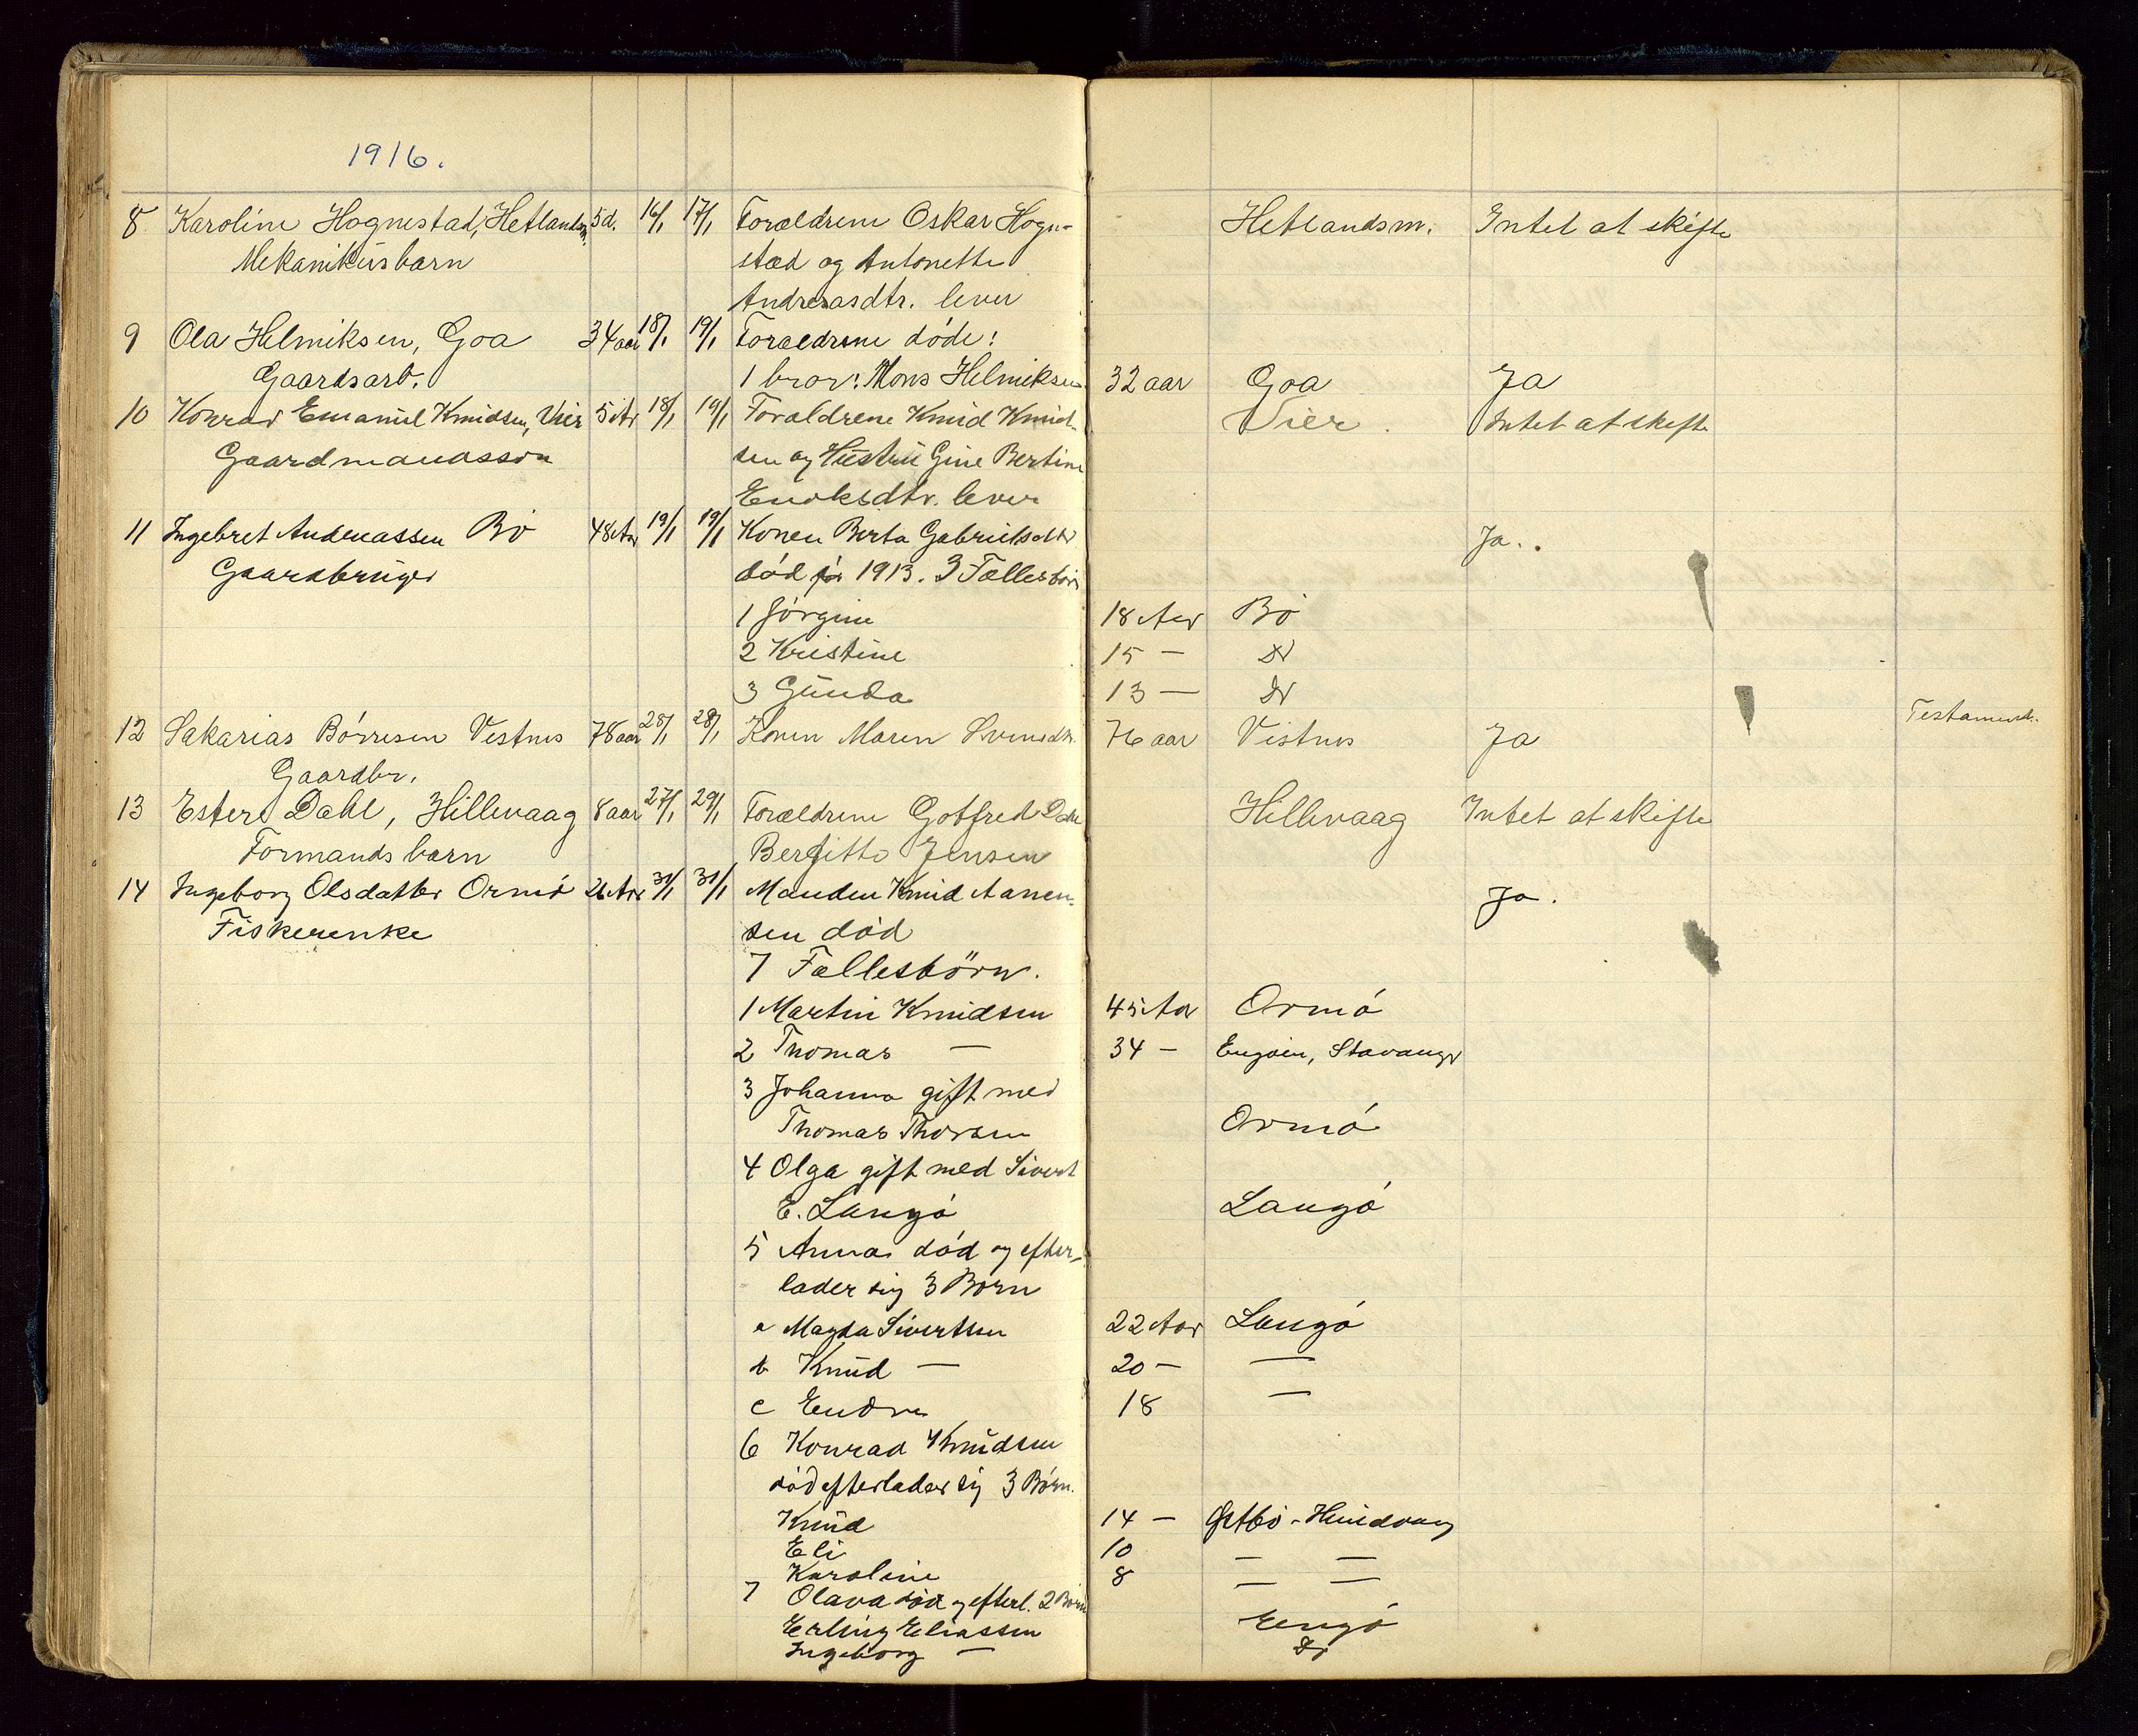 1916.
8 Karoline Hognestad, Hetlandsm. 5d. 16/1 17/1 Forældrene Oskar Hogne- Hetlandsm. Intet at skifte
Mekanikusbarn stad og Antonette
Andreasdtr. lever
9 Ola Helmiksen, Goa 34 aar 18/1 19/1 Forældrene döde:
Gaardsarb. 1 bror: Mons Helmiksen 32 aar Goa Ja
10 Konrad Emanuel Knudsen, Vier 5 Ar 18/1 19/1 Forældrene Knud Knud- Vier. Intet at skifte
Gaardmandssön sen og Hustru Gine Bertine
Enoksdtr. lever
11 Ingebret Andreassen Bö 48 Aar 19/1 19/1 Konen Berta Gabrielsdtr Ja.
Gaardbruger död 1913. 3 Fællesbörn
1 Jörgine 18 Aar Bö
2 Kristine 15 — Do
3 Gunda 13 — Do
12 Sakarias Börresen Vestnes 78 aar 28/1 28/1 Konen Maren Svensdtr. 76 aar Vistnes Ja Testament.
Gaardbr.
13 Ester Dahl, Hillevaag 8 aar 27/1 29/1 Forældrene Gotfred Dahl Hillevaag Intet at skifte
Formandsbarn Bergitte Jensen
14 Ingeborg Olsdatter Ormö Aar 31/1 31/1 Manden Knud Aanen- Ja.
Fiskerenke sen död
7 Fællesbörn.
1 Martin Knudsen 45 Aar Ormö
2 Thomas — 34 — Engöen, Stavanger
3 Johanna gift med
Thomas Thorsen Ormö
4 Olga gift med Sivert
E. Langö Langö
5 Anna död og efter-
lader sig 3 Börn
a Magda Sivertsen 22 Aar Langö
b Knud — 20 — —
c Endre 18 —
6 Konrad Knudsen
död efterlader sig 3 Börn.
Knud 14 — Östbö - Hundvaag
Eli 10 — —
Karoline 8 — —
7 Olava död og efterl. 2 Börn
Erling Eliassen Engö
Ingeborg — Do